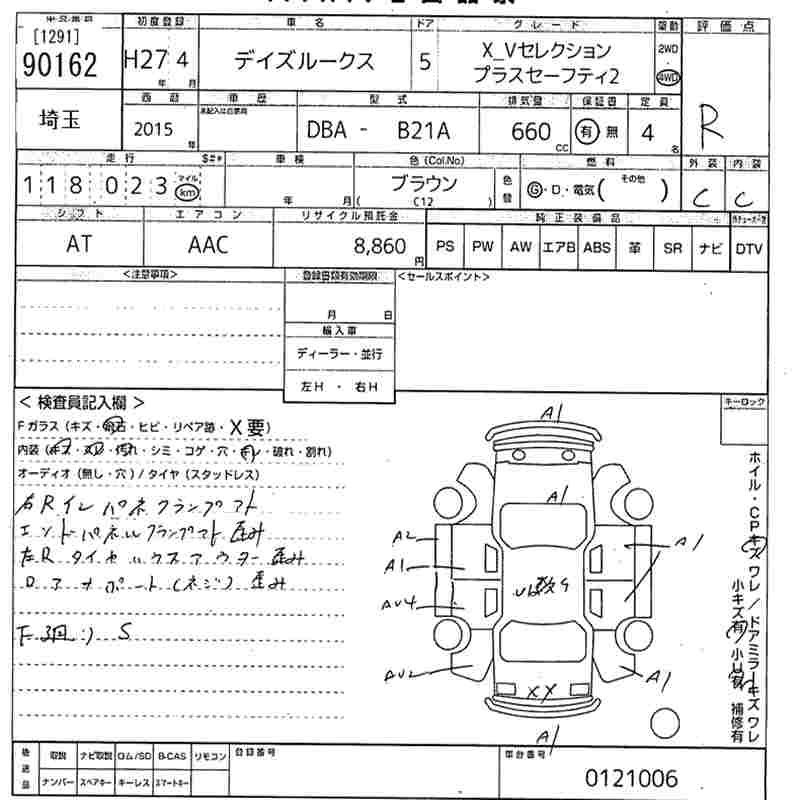 初度登録 車名 ドア グレード 駆動 評価点
[1291]
90162 H27 4 デイズルークス 5 X_Vセレクション 2WD
プラスセーフティ2 4WD
年 月
埼玉 西暦 車歴 型式 排気量 保証書 定員 R
未記入は自家用
2015 DBA - B21A 660 有 無 4
年 CC 名
走行 $#* 車検 色(Col.No) 燃料 外装 内装
118023 マイル km ブラウン 色替 G・D・電気( その他 ) C C
年 月 ( C12 )
シフト エアコン リサイクル預託金 純正装備品
AT AAC 8,860 円 PS PW AW エアB ABS 革 SR ナビ DTV
<注意事項> 登録書類有効期限 <セールスポイント>
月 日
輸入車
ディーラー・並行
左H ・ 右H
< 検査員記入欄 > キーロック
Fガラス (キズ・飛石・ヒビ・リペア跡・X要)
内装 (キズ・ヌレ・汚れ・シミ・コゲ・穴・キレ・破れ・割れ)
オーディオ (無し・穴) / タイヤ (スタッドレス)
右Rインパネクランプアト
エンドパネルクランプアト 歪み
左Rタイヤハウスアウター歪み
ロアサポート(ネジ)歪み
S
A1
A1
A2
A1
A1
AU4
AU2
A1
XX
A1
ホイル・CPキズワレ/ドアミラーキズワレ
小キズ有 小U有 補修有
後送品 取説 ナビ取説 ロム/SD B-CAS リモコン 登録番号 車台番号
ナンバー スペアキー キーレス スマートキー 0121006